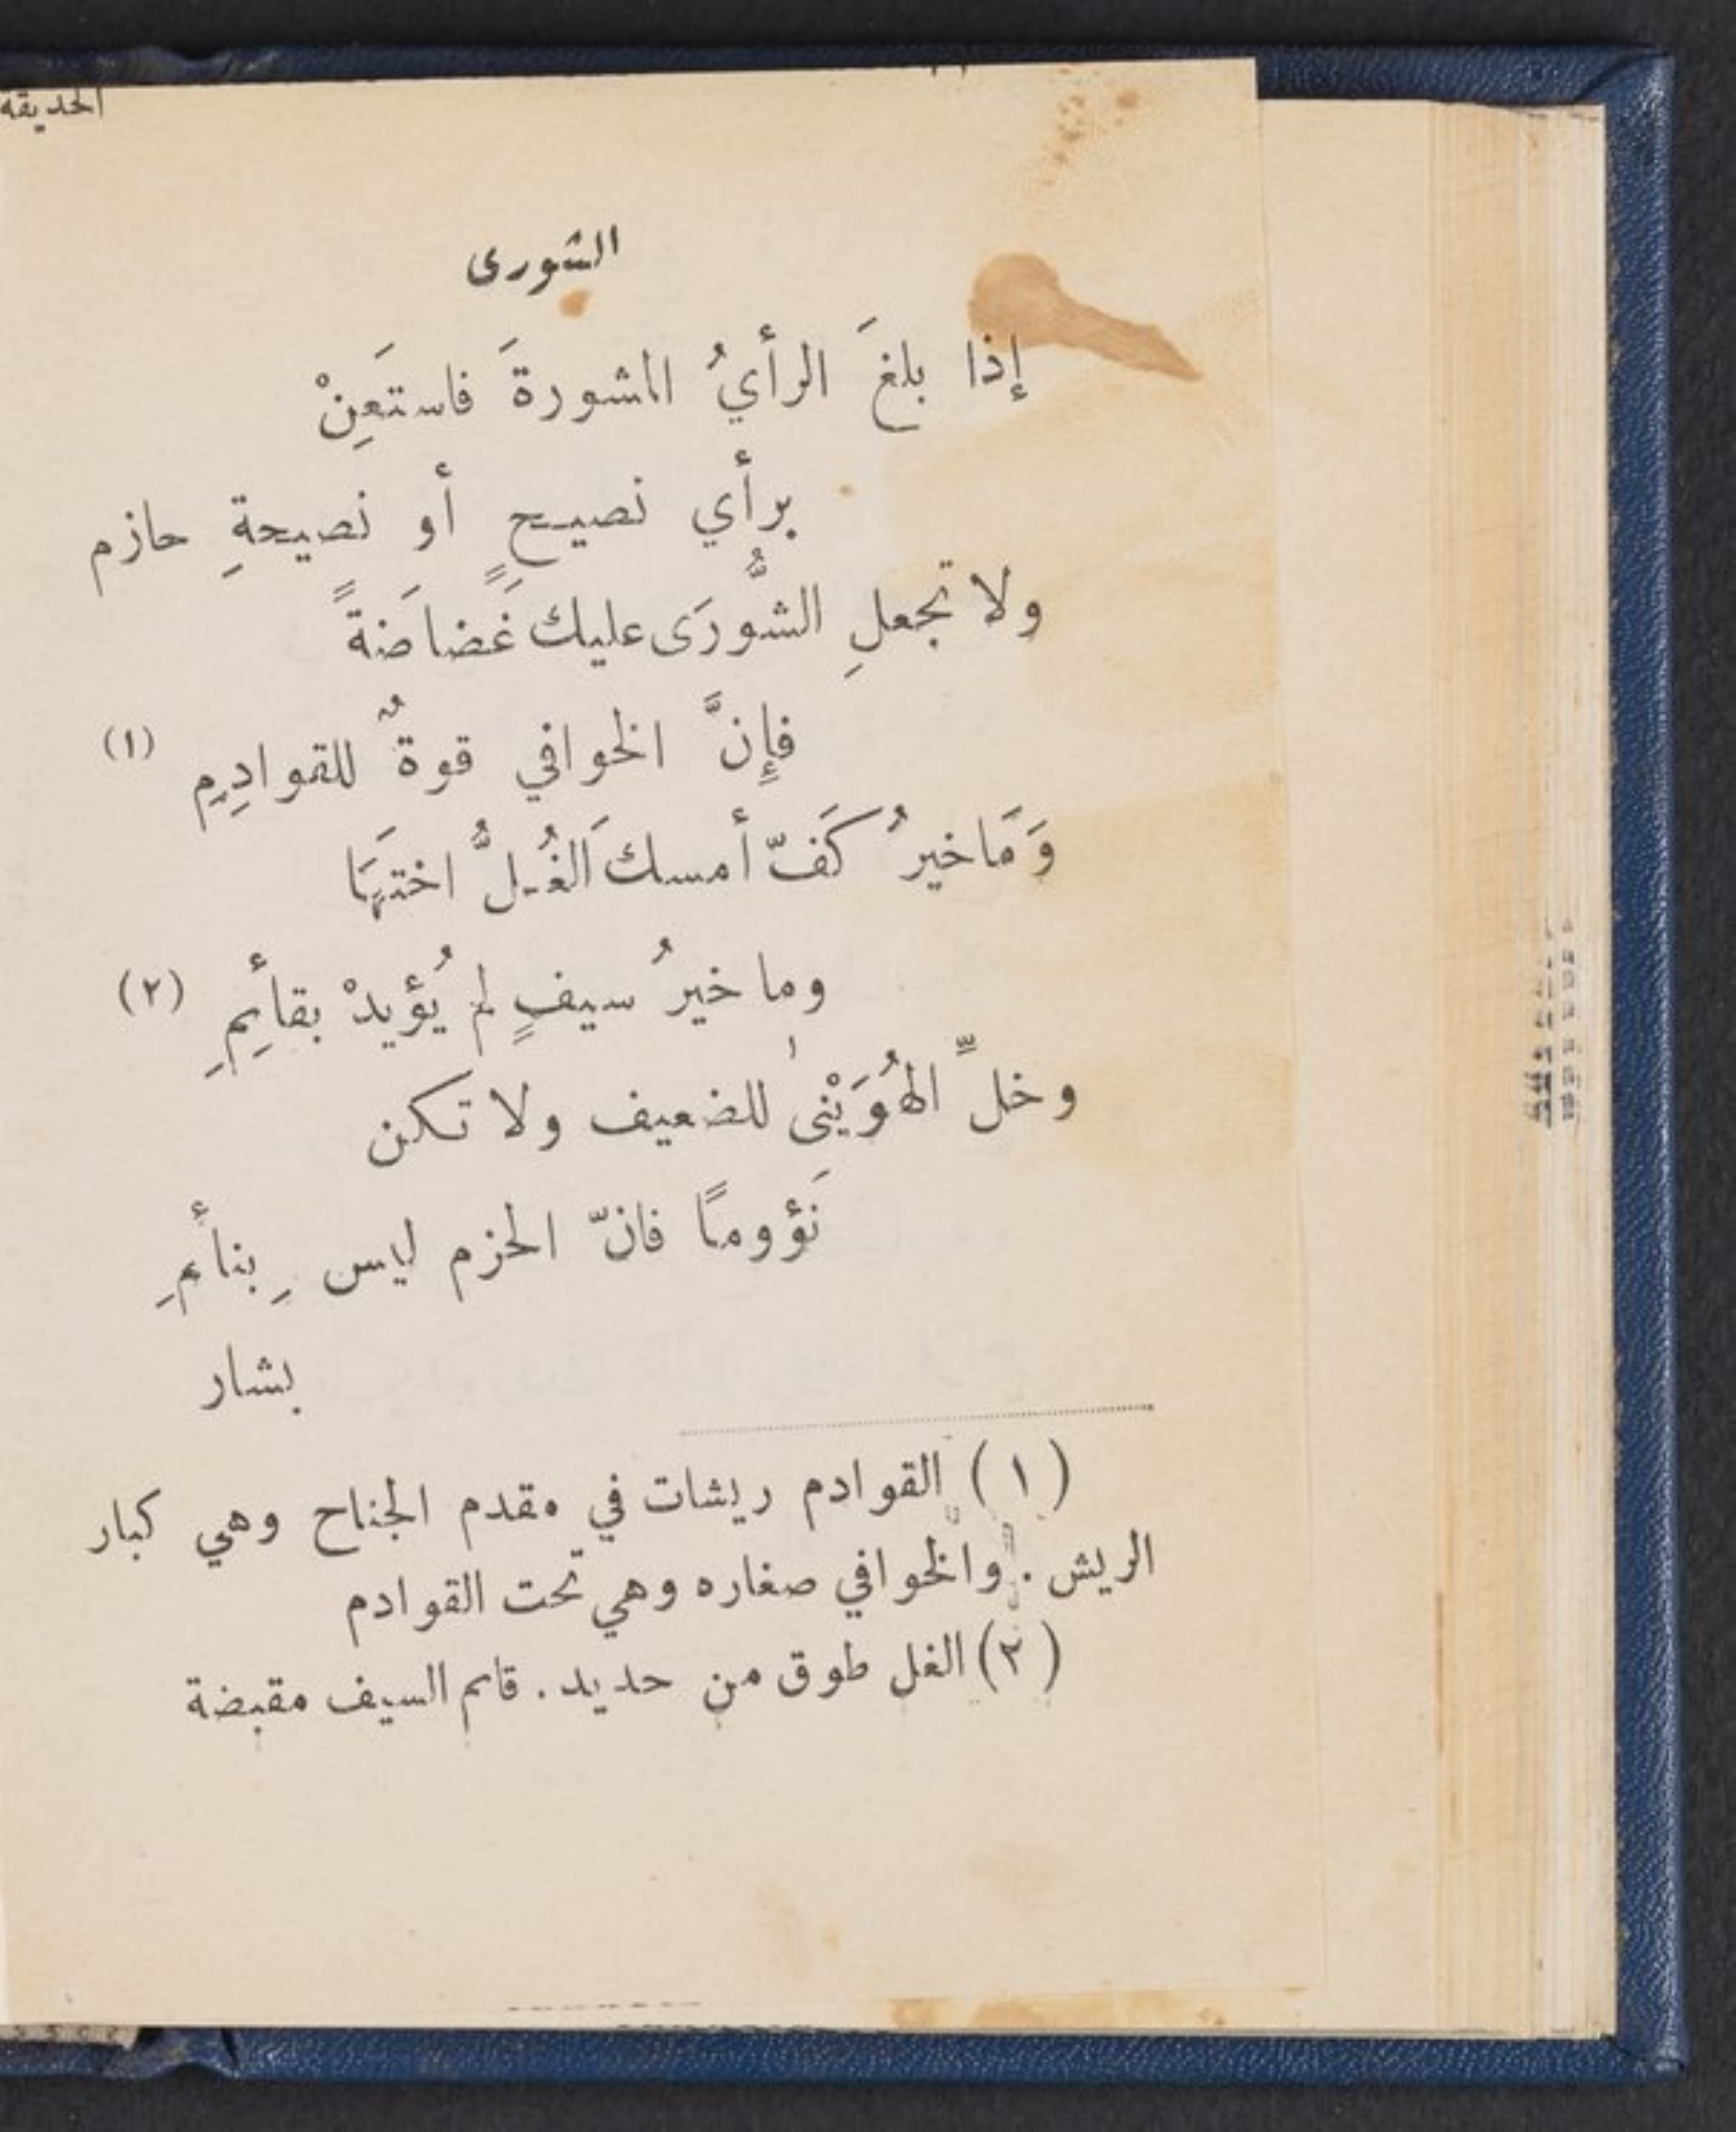 الحديقة
الشورى
إذا بلغَ الرأيُ المشورةَ فاستَعِنْ
برأي نصيحٍ أو نصيحةِ حازم
ولا تجعلِ الشُّورَى عليك غَضاضَةً
فإِنَّ الخوافي قوةٌ للقوادِمِ (١)
وَمَا خيرُ كَفّ أمسكَ الغُلُّ اختَهَا
وما خيرُ سيفٍ لم يُؤيدْ بقائِمِ (٢)
وخلِّ الهُوَيْنىٰ للضعيف ولا تكن
نَؤومًا فانّ الحزم ليس بِنائمِ
بشار
(١) القوادم ريشات في مقدم الجناح وهي كبار
الريش . والخوافي صغاره وهي تحت القوادم
(٢) الغل طوق من حديد . قائم السيف مقبضة